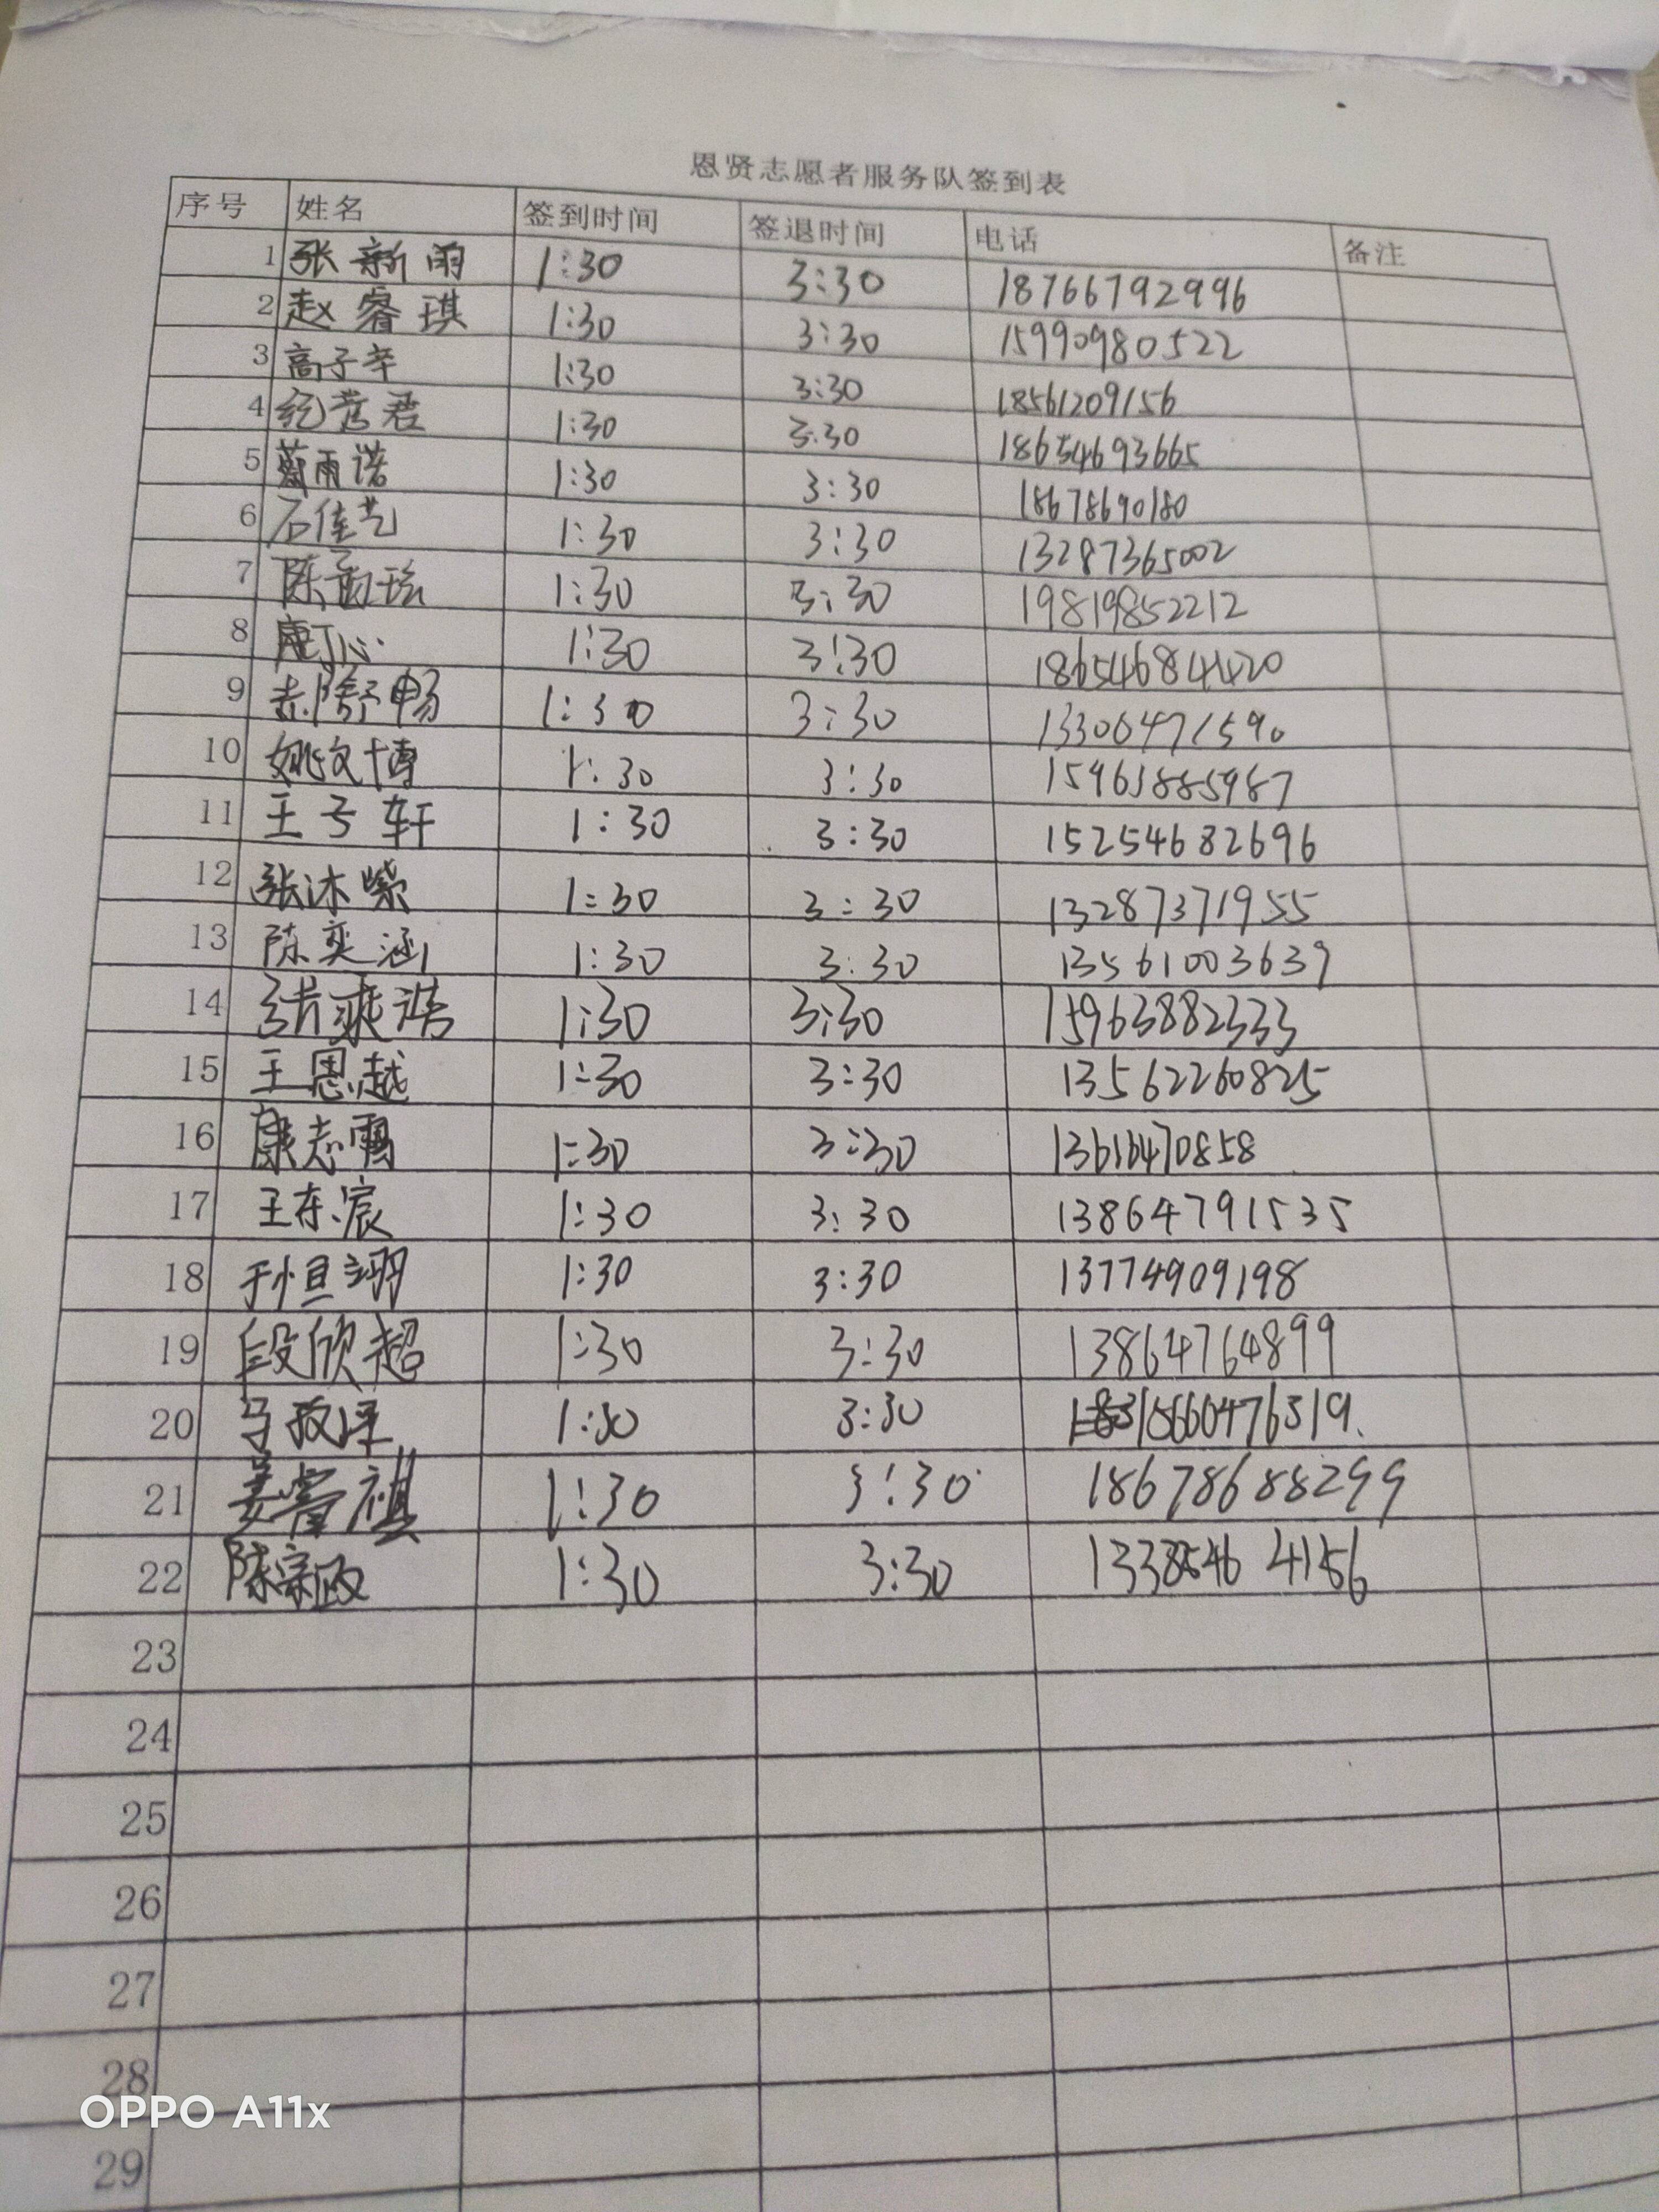 恩贤志愿者服务队签到表
序号 姓名 签到时间 签退时间 电话 备注
1 张新雨 1:30 3:30 18766792996
2 赵睿琪 1:30 3:30 15990980522
3 高子辛 1:30 3:30 18561209156
4 1:30 3:30 18654693665
5 1:30 3:30 18678690180
6 石佳艺 1:30 3:30 13287365002
7 1:30 3:30 19819852212
8 1:30 3:30 18654684420
9 1:30 3:30 13306471590
10 姚文博 1:30 3:30 15963885987
11 王亏轩 1:30 3:30 15254682696
12 张沐紫 1:30 3:30 13287371955
13 陈奕涵 1:30 3:30 13561003639
14 1:30 3:30 15963882333
15 王恩越 1:30 3:30 13562260825
16 1:30 3:30
17 王东宸 1:30 3:30 13864791535
18 1:30 3:30 13774909198
19 段欣超 1:30 3:30 13864764899
20 1:30 3:30
21 姜睿祺 1:30 3:30 18678688299
22 陈宗政 1:30 3:30 13385464156
23
24
25
26
27
28
29
OPPO A11x